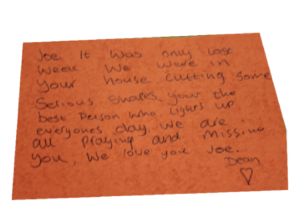 Joe, It was only last
week we were in
your house cutting some
serious shapes, your the
best person who lights up
everyones day, we are
all praying and missing
you, we love you Joe.
Dean